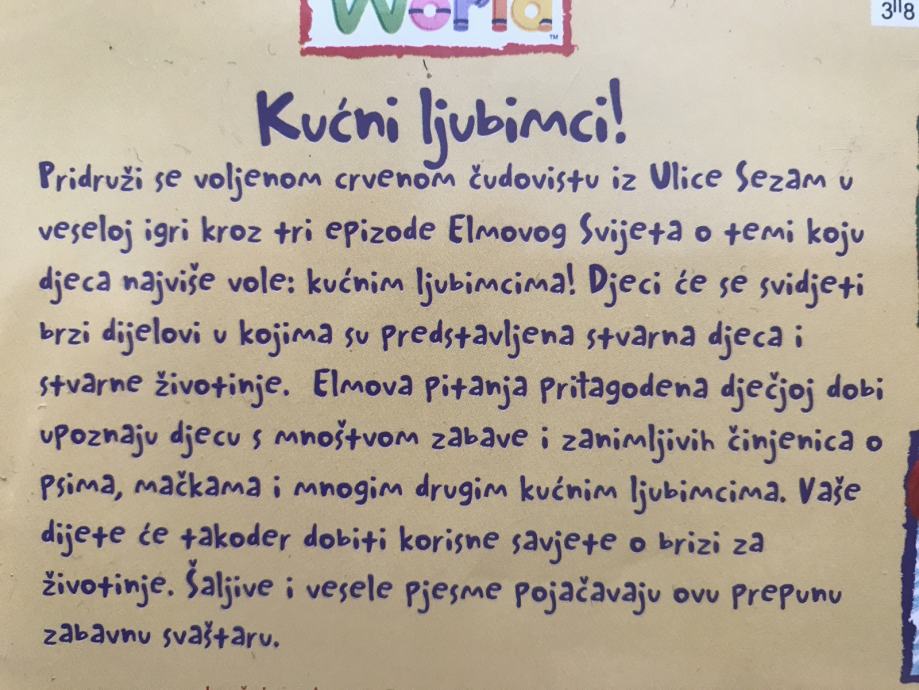 World
TM
3"8
Kućni ljubimci!
Pridruži se voljenom crvenom čudovistu iz Ulice Sezam u
veseloj igri kroz tri epizode Elmovog Svijeta o temi koju
djeca najviše vole: kućnim ljubimcima! Djeci će se svidjeti
brzi dijelovi u kojima su predstavljena stvarna djeca i
stvarne životinje. Elmova pitanja pritagodena dječjoj dobi
upoznaju djecu s mnoštvom zabave i zanimljivih činjenica o
psima, mačkama i mnogim drugim kućnim ljubimcima. Vaše
dijete će takoder dobiti korisne savjete o brizi za
životinje. Šaljive i vesele pjesme pojačavaju ovu prepunu
zabavnu svaštaru.